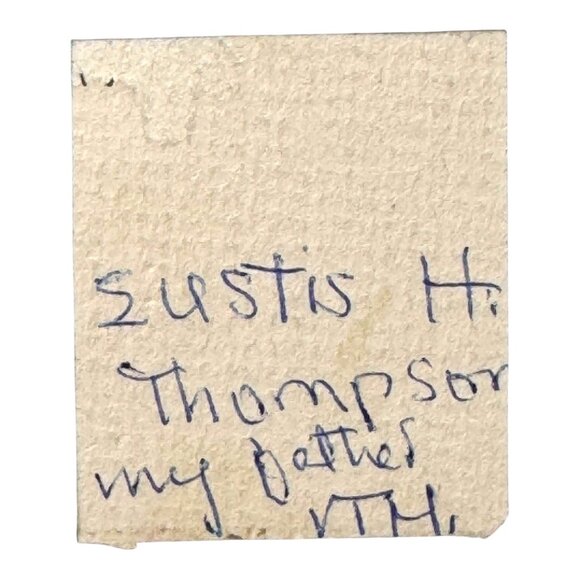 Eustis H.
Thompson
my father
VTH.